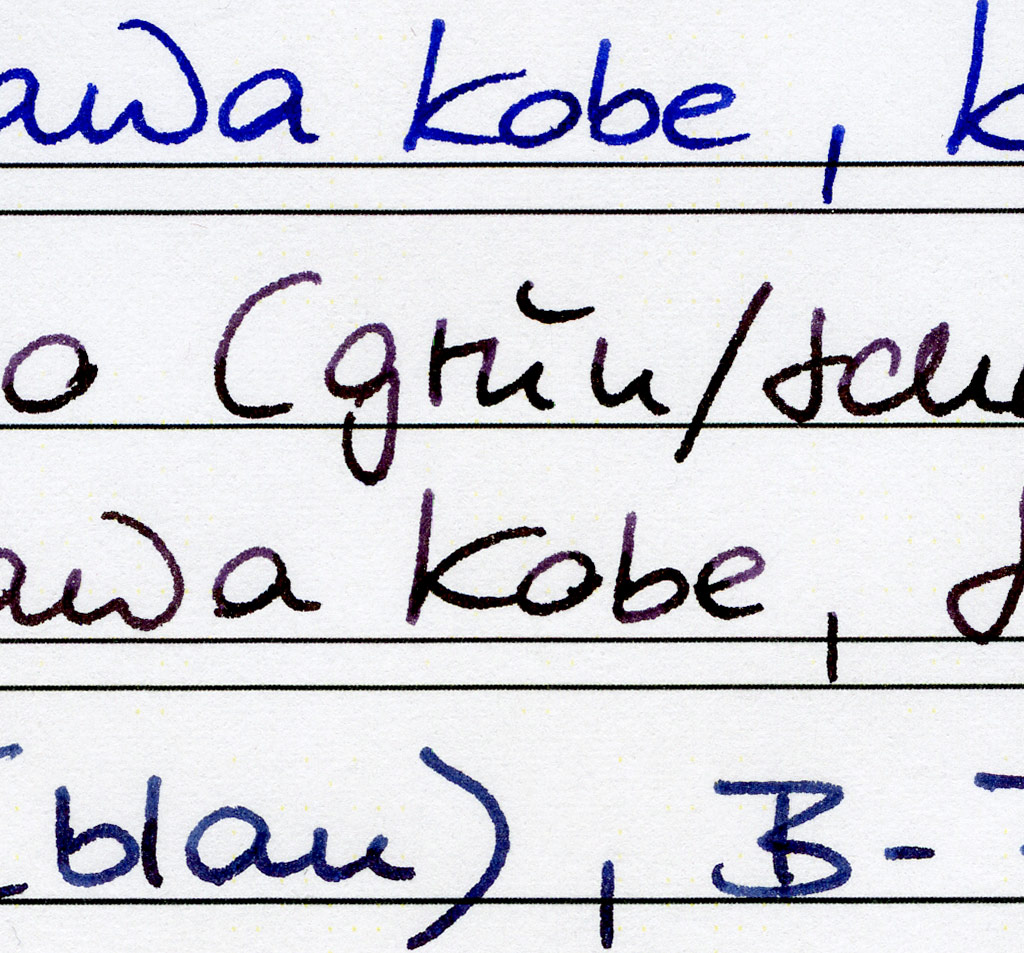 awa Kobe, K
o (grün/sch
awa Kobe,
(blau), B-